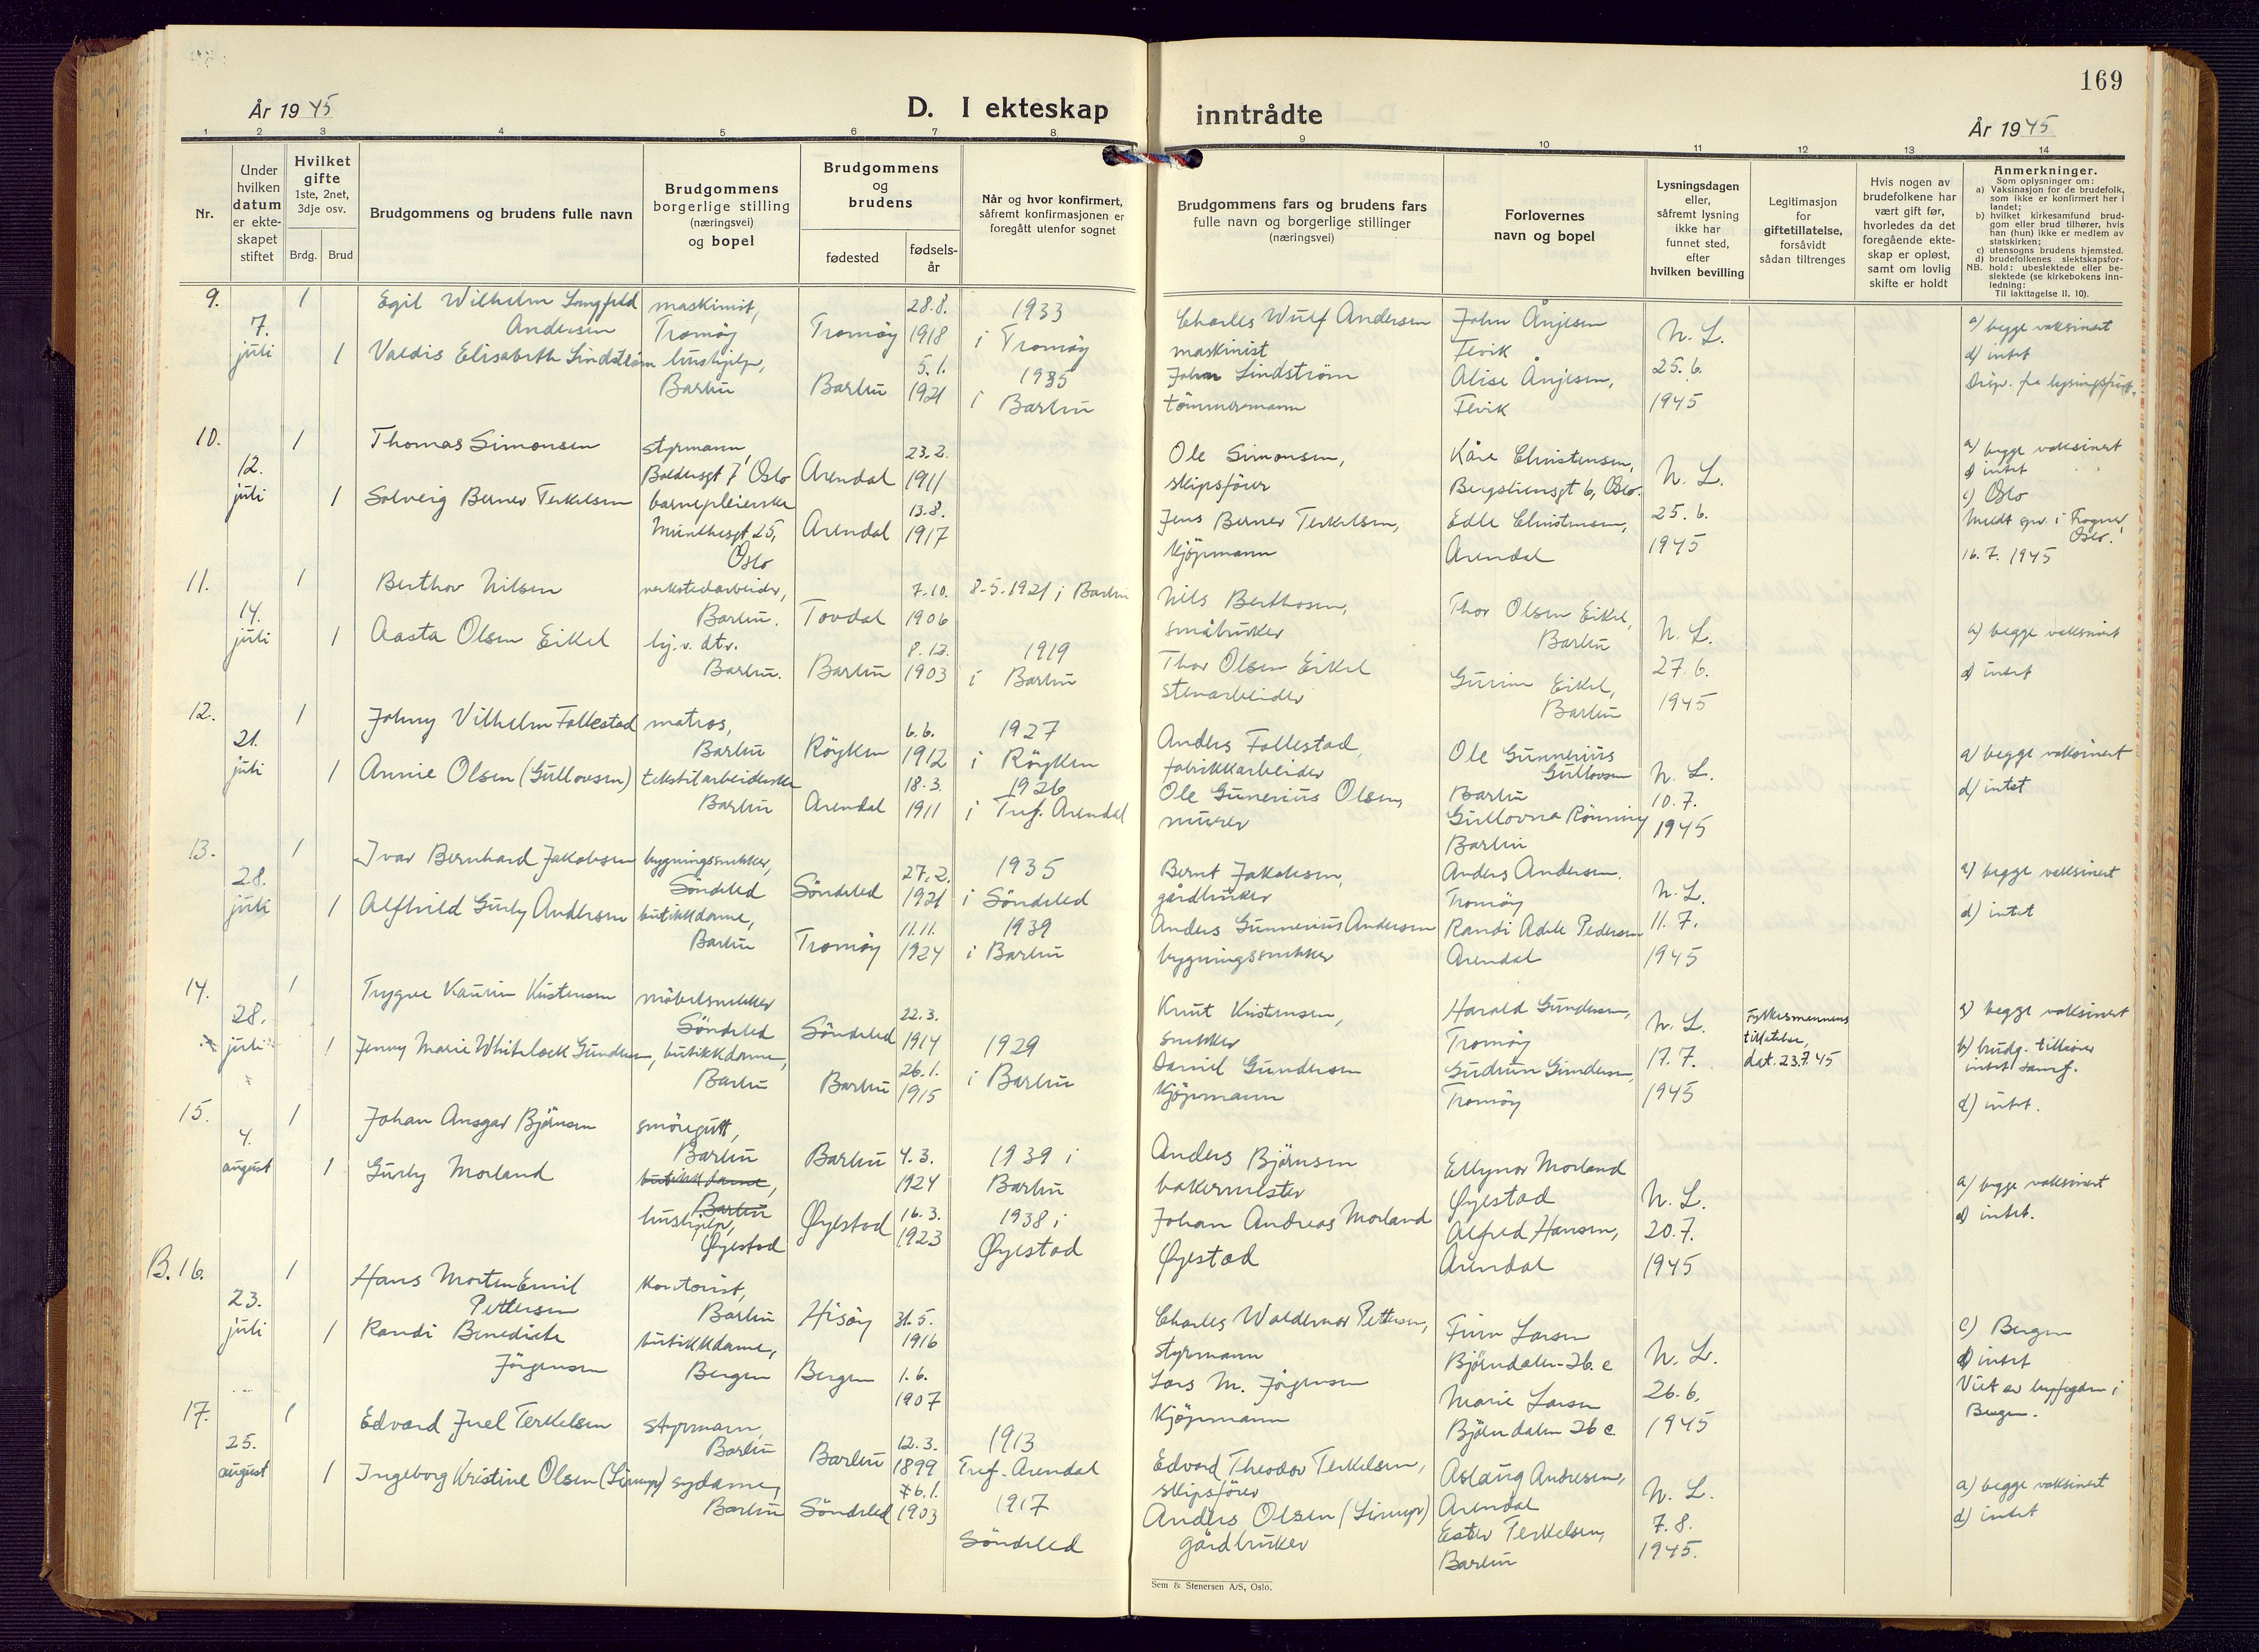 169
År 1945
D. I ekteskap
inntrådte
År 1945
1
2
3
4
5
6
7
8
9
10
11
12
13
14
Nr.
Under
hvilken
datum
er ekte-
skapet
stiftet
Hvilket
gifte
1ste, 2net,
3dje osv.
Brdg.
Brud
Brudgommens og brudens fulle navn
Brudgommens
borgerlige stilling
(næringsvei)
og bopel
Brudgommens
og
brudens
fødested
fødsels-
år
Når og hvor konfirmert,
såfremt konfirmasjonen er
foregått utenfor sognet
Brudgommens fars og brudens fars
fulle navn og borgerlige stillinger
(næringsvei)
Forlovernes
navn og bopel
Lysningsdagen
eller,
såfremt lysning
ikke har
funnet sted,
efter
hvilken bevilling
Legitimasjon
for
giftetillatelse,
forsåvidt
sådan tiltrenges
Hvis nogen av
brudefolkene har
vært gift før,
hvorledes da det
foregående ekte-
skap er opløst,
samt om lovlig
skifte er holdt
Anmerkninger.
Som oplysninger om:
a) Vaksinasjon for de brudefolk,
som ikke er konfirmert her i
landet;
b) hvilket kirkesamfund brud-
gom eller brud tilhører, hvis
han (hun) ikke er medlem av
statskirken;
c) utensogns brudens hjemsted.
d) brudefolkenes slektskapsfor-
NB. hold: ubeslektede eller be-
slektede (se kirkebokens inn-
ledning:
Til iakttagelse II. 10).
9.
7.
juli
1
1
Egil Wilhelm Langfeld
Andersen
Valdis Elisabeth Lindstrøm
maskinist,
Tromøy
hushjelp,
Barbu
Tromøy
Barbu
28.8.
1918
5.1.
1921
1933
i Tromøy
1935
i Barbu
Charles Wulf Andersen
maskinist
John Lindstrøm
tömmermann
John Ånjesen
Fevik
Alise Ånjesen,
Fevik
N. L.
25.6.
1945
a) begge vaksinert
d) intet
Disp. fra lysningsfrist.
10.
12.
juli
1
1
Thomas Simonsen
Solveig Berner Terkelsen
styrmann,
Baldersgt 7 Oslo
barnepleierske
Munthesgt 25,
Oslo
Arendal
Arendal
23.2.
1911
13.8.
1917
Ole Simonsen,
skipsfører
Jens Berner Terkelsen,
Kjöpmann
Kåre Christensen,
Bergsliensgt 6, Oslo.
Edle Christensen,
Arendal
N. L.
25.6.
1945
a) begge vaksinert
d) intet
c) Oslo
Meldt spr. i Frogner,
Oslo.
16.7.1945
11.
14.
juli
1
1
Berthov Nilsen
Aasta Olsen Eikel
verkstedarbeider,
Barbu.
hj.v. dtr.
Barbu.
Tovdal
Barbu
7.10.
1906
8.12.
1903
8.5.1921 i Barbu
1919
i Barbu
Nils Berthosen,
småbruker
Thor Olsen Eikel
stenarbeider
Thor Olsen Eikel,
Barbu
Eikel,
Barbu
N. L.
27.6.
1945
a) begge vaksinert
d) intet
12.
21.
juli
1
1
Johny Vilhelm Follestad
Annie Olsen (Gullovsen)
matros,
Barbu
tekstilarbeiderske
Barbu
Röyken
Arendal
6.6.
1912
18.3.
1911
1927
i Röyken
1926
i Tref. Arendal
Anders Follestad,
fabrikkarbeider
Ole Gunerius Olsen,
murer
Ole Gunnerius
Gullovsen
Barbu
Gullovna Rönning
Barbu
N. L.
10.7.
1945
a) begge vaksinert
d) intet
13.
28.
juli
1
1
Ivar Bernhard Jakobsen
Alfhild Gurly Andersen
bygningssnekker,
Söndeled
butikkdame,
Barbu
Söndeled
Tromøy
27.2.
1921
11.11.
1924
1935
i Söndeled
1939
i Barbu
Bernt Jakobsen,
gårdbruker
Anders Gunnerius Andersen
bygningssnekker
Anders Andersen.
Tromøy
Randi Adele Pedersen
Arendal
N. L.
11.7.
1945
a) begge vaksinert
d) intet
14.
28.
juli
1
1
Trygve Kaurin Kristensen
Jenny Marie Whitelock Gundersen,
möbelsnekker
Söndeled
butikkdame,
Barbu
Söndeled
Barbu
22.3.
1914
26.1.
1915
1929
i Barbu
Knut Kristensen,
snekker
Daniel Gundersen
Kjöpmann
Harald Gundersen,
Tromøy
Gudrun Gundersen,
Tromøy
N. L.
17.7.
1945
Fylkesmannens
tillatelse,
dat. 23.7.45
a) begge vaksinert
b) brudg. tilhører
intet samf.
d) intet.
15.
4.
august
1
1
Johan Ansgar Björnsen
Gurly Morland
smöregutt,
Barbu
butikkdame,
Barbu
hushjelp,
Øyestad
Barbu
Øyestad
4.3.
1924
16.3.
1923
1939 i
Barbu
1938 i
Øyestad
Anders Björnsen
bakermester
Johan Andreas Morland
Øyestad
Ellynor Morland
Øyestad
Alfred Hansen,
Arendal
N. L.
20.7.
1945
a) begge vaksinert
d) intet.
B. 16.
23.
juli
1
1
Hans Morten Emil
Pettersen
Randi Benedicte
Jörgensen
Kontorist,
Barbu
butikkdame,
Bergen
Hisöy
Bergen
31.5.
1916
1.6.
1907
Charles Waldemar Pettersen,
styrmann
Lars M. Jörgensen
Kjöpmann
Finn Larsen
Björndalen 26 c
Marie Larsen
Björndalen 26 c
N. L.
26.6.
1945
c) Bergen
d) intet
Viet av byfogden i
Bergen.
17.
25.
august
1
1
Edvard Juel Terkelsen
Ingeborg Kristine Olsen
styrmann,
Barbu
sydame,
Barbu
Barbu
Söndeled
12.3.
1899
1903
1913
Tref. Arendal
1917
Söndeled
Edvard Theodor Terkelsen,
skipsfører
Anders Olsen
gårdbruker
Aslaug Andresen,
Arendal
Ester Terkelsen,
Barbu
N. L.
7.8.
1945.
a) begge vaksinert
d) intet
Sem & Stenersen A/S, Oslo.